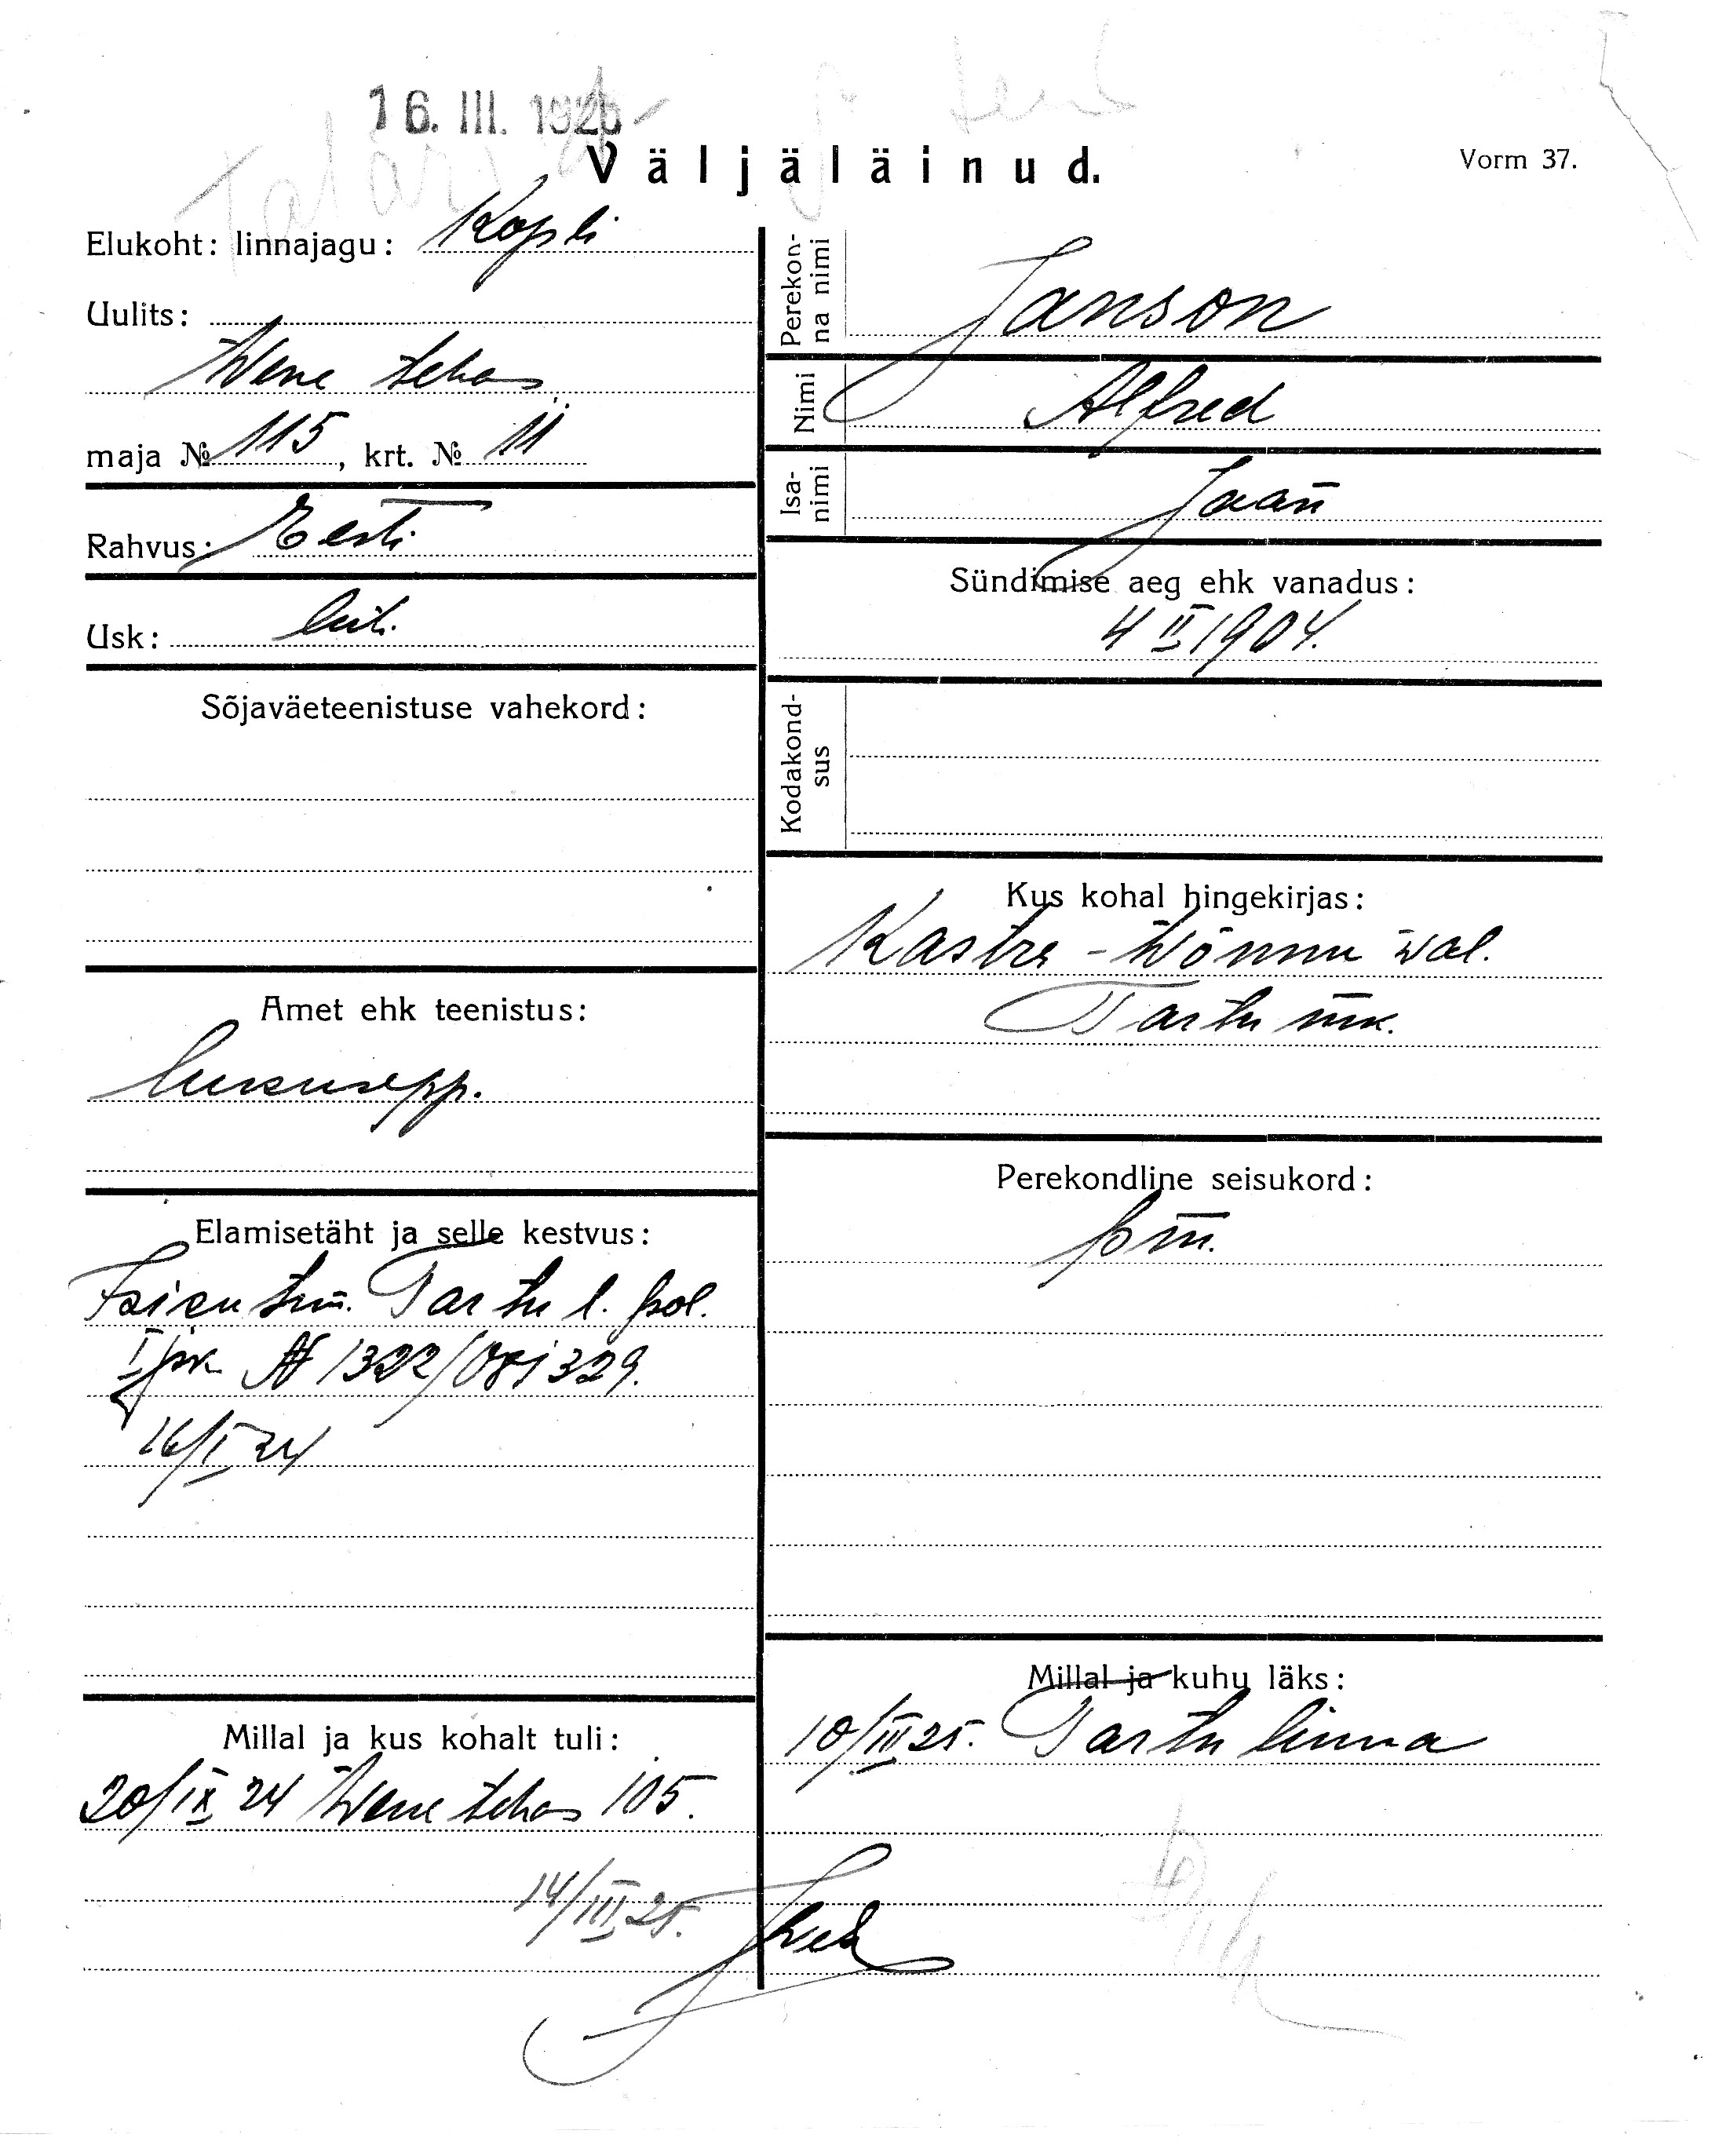 16. III. 1925
Väljäläinud.
Vorm 37.
Elukoht: linnajagu: Kopli
Uulits:
Wene tehas
maja № 115, krt. № 11
Rahvus: Eesti
Usk: luti.
Sõjaväeteenistuse vahekord:
Amet ehk teenistus:
lukusepp.
Elamisetäht ja selle kestvus:
Isikutun. Tartu l. pol.
I jsk № 1322/081329.
16/I 24
Millal ja kus kohalt tuli:
20/IX 24 Wene tehas 105.
14/III 25.
Perekon-
na nimi
Janson
Nimi
Alfred
Isa-
nimi
Jaan
Sündimise aeg ehk vanadus:
4 II 1904.
Kodakond-
sus
Kus kohal hingekirjas:
Kastre-Wõnnu wal.
Tartu mk.
Perekondline seisukord:
pm.
Millal ja kuhu läks:
10/III 25. Tartu linna